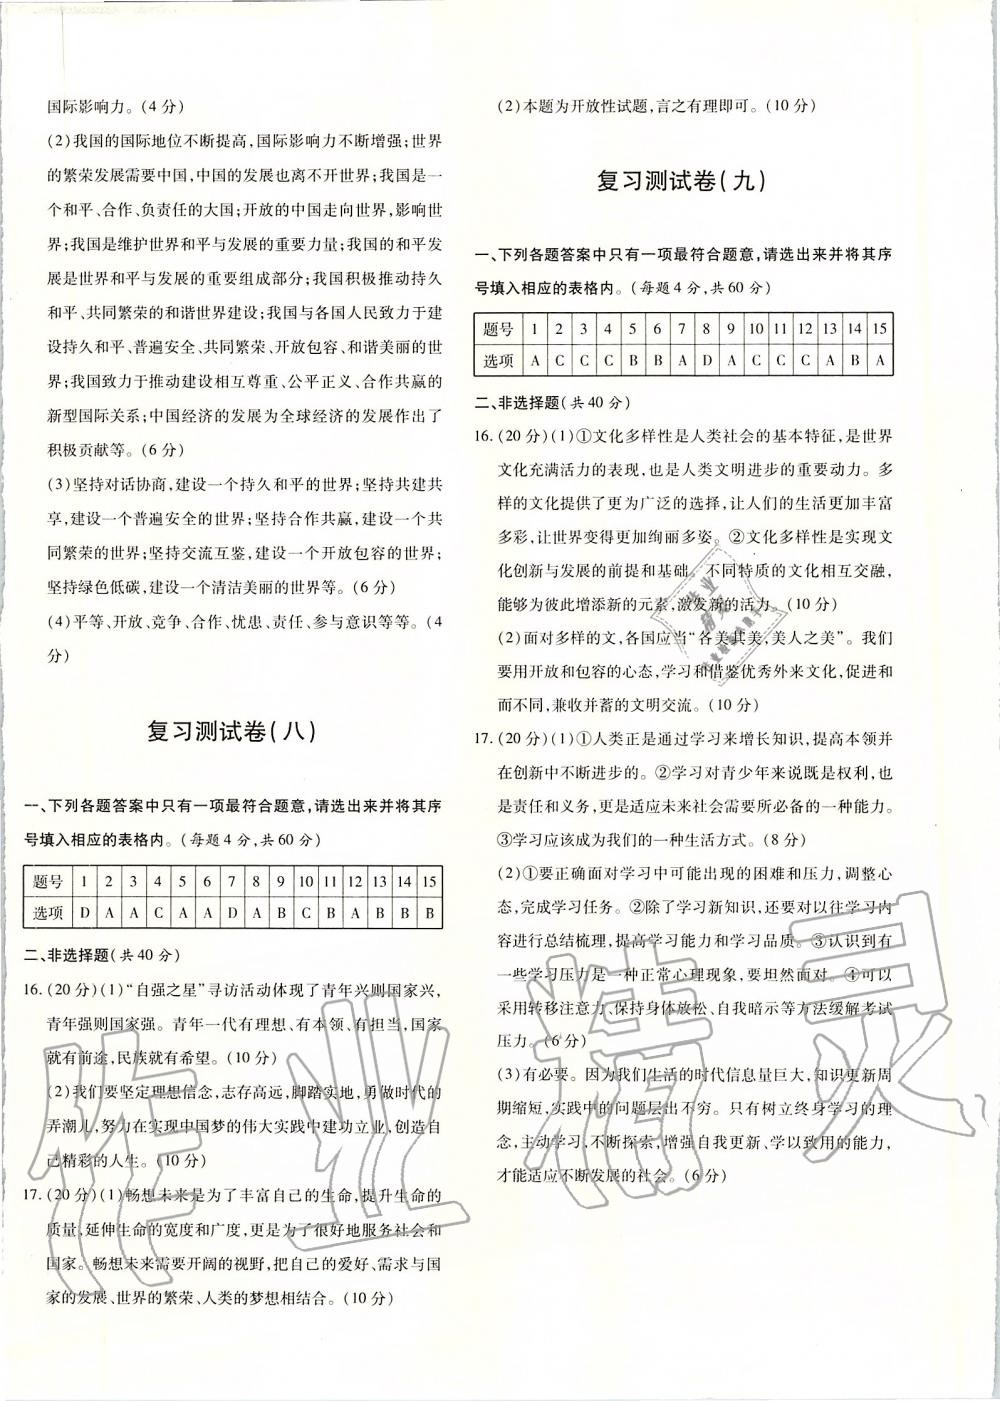 国际影响力。(4 分)
(2)我国的国际地位不断提高,国际影响力不断增强;世界
的繁荣发展需要中国,中国的发展也离不开世界;我国是一
个和平、合作、负责任的大国;开放的中国走向世界,影响世
界;我国是维护世界和平与发展的重要力量;我国的和平发
展是世界和平与发展的重要组成部分;我国积极推动持久
和平、共同繁荣的和谐世界建设;我国与各国人民致力于建
设持久和平、普遍安全、共同繁荣、开放包容、和谐美丽的世
界;我国致力于推动建设相互尊重、公平正义、合作共赢的
新型国际关系;中国经济的发展为全球经济的发展作出了
积极贡献等。(6 分)
(3)坚持对话协商,建设一个持久和平的世界;坚持共建共
享,建设一个普遍安全的世界;坚持合作共赢,建设一个共
同繁荣的世界;坚持交流互鉴,建设一个开放包容的世界;
坚持绿色低碳,建设一个清洁美丽的世界等。(6 分)
(4)平等、开放、竞争、合作、忧患、责任、参与意识等等。(4
分)
复习测试卷(八)
一、下列各题答案中只有一项最符合题意,请选出来并将其序
号填入相应的表格内。(每题 4 分,共 60 分)
题号 1 2 3 4 5 6 7 8 9 10 11 12 13 14 15
选项 D A A C A A D A B C B A A B B
二、非选择题(共 40 分)
16.(20 分)(1)“自强之星”寻访活动体现了青年兴则国家兴,
青年强则国家强。青年一代有理想、有本领、有担当,国家
就有前途,民族就有希望。(10 分)
(2)我们要坚定理想信念,志存高远,脚踏实地,勇做时代的
弄潮儿,努力在实现中国梦的伟大实践中建功立业,创造自
己精彩的人生。(10 分)
17.(20 分)(1)畅想未来是为了丰富自己的生命,提升生命的
质量,延伸生命的宽度和广度,更是为了很好地服务社会和
国家。畅想未来需要开阔的视野,把自己的爱好、需求与国
家的发展、世界的繁荣、人类的梦想相结合。(10 分)
(2)本题为开放性试题,言之有理即可。(10 分)
复习测试卷(九)
一、下列各题答案中只有一项最符合题意,请选出来并将其序
号填入相应的表格内。(每题 4 分,共 60 分)
题号 1 2 3 4 5 6 7 8 9 10 11 12 13 14 15
选项 A C C C B B A D A C C C A B A
二、非选择题(共 40 分)
16.(20 分)(1)①文化多样性是人类社会的基本特征,是世界
文化充满活力的表现,也是人类文明进步的重要动力。多
样的文化提供了更为广泛的选择,让人们的生活更加丰富
多彩,让世界变得更加绚丽多姿。②文化多样性是实现文
化创新与发展的前提和基础。不同特质的文化相互交融,
能够为彼此增添新的元素,激发新的活力。(10 分)
(2)面对多样的文,各国应当“各美其美,美人之美”。我们
要用开放和包容的心态,学习和借鉴优秀外来文化,促进和
而不同,兼收并蓄的文明交流。(10 分)
17.(20 分)(1)①人类正是通过学习来增长知识,提高本领并
在创新中不断进步的。②学习对青少年来说既是权利,也
是责任和义务,更是适应未来社会需要所必备的一种能力。
③学习应该成为我们的一种生活方式。(8 分)
(2)①要正确面对学习中可能出现的困难和压力,调整心
态,完成学习任务。②除了学习新知识,还要对以往学习内
容进行总结梳理,提高学习能力和学习品质。③认识到有
一些学习压力是一种正常心理现象,要坦然面对。④可以
采用转移注意力、保持身体放松、自我暗示等方法缓解考试
压力。(6 分)
(3)有必要。因为我们生活的时代信息量巨大,知识更新周
期缩短,实践中的问题层出不穷。只有树立终身学习的理
念,主动学习,不断探索,增强自我更新、学以致用的能力,
才能适应不断发展的社会。(6 分)
作业精灵